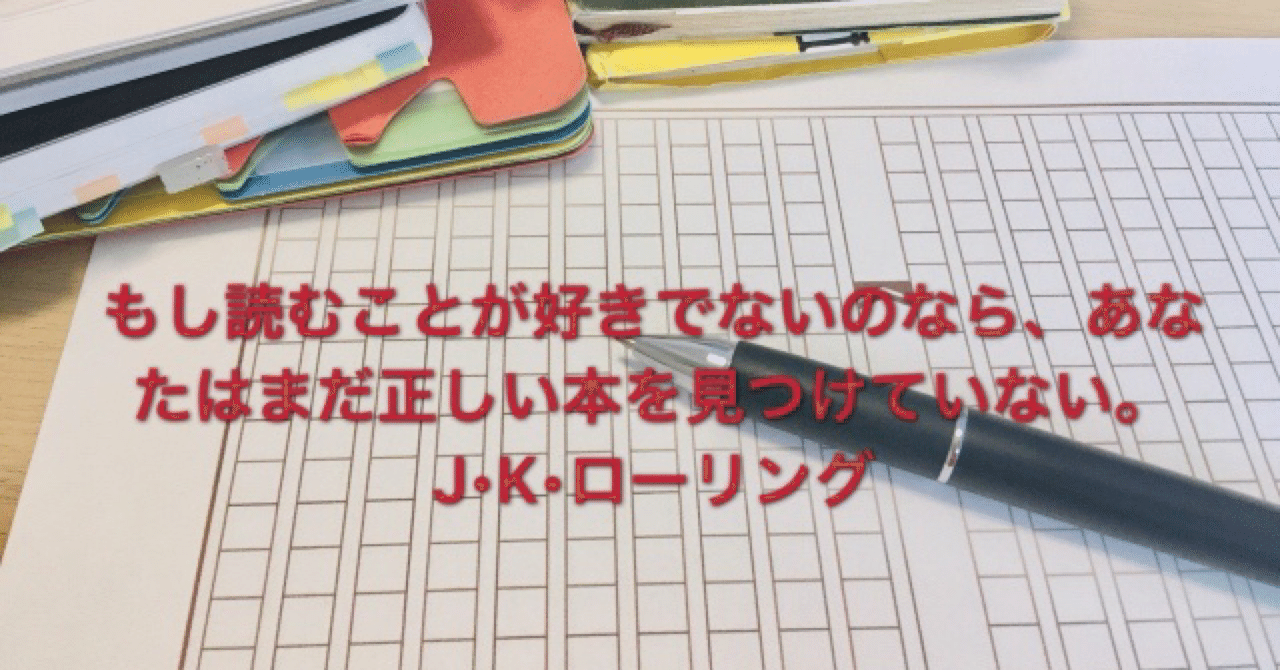 もし読むことが好きでないのなら、あな
たはまだ正しい本を見つけていない。
J・K・ローリング